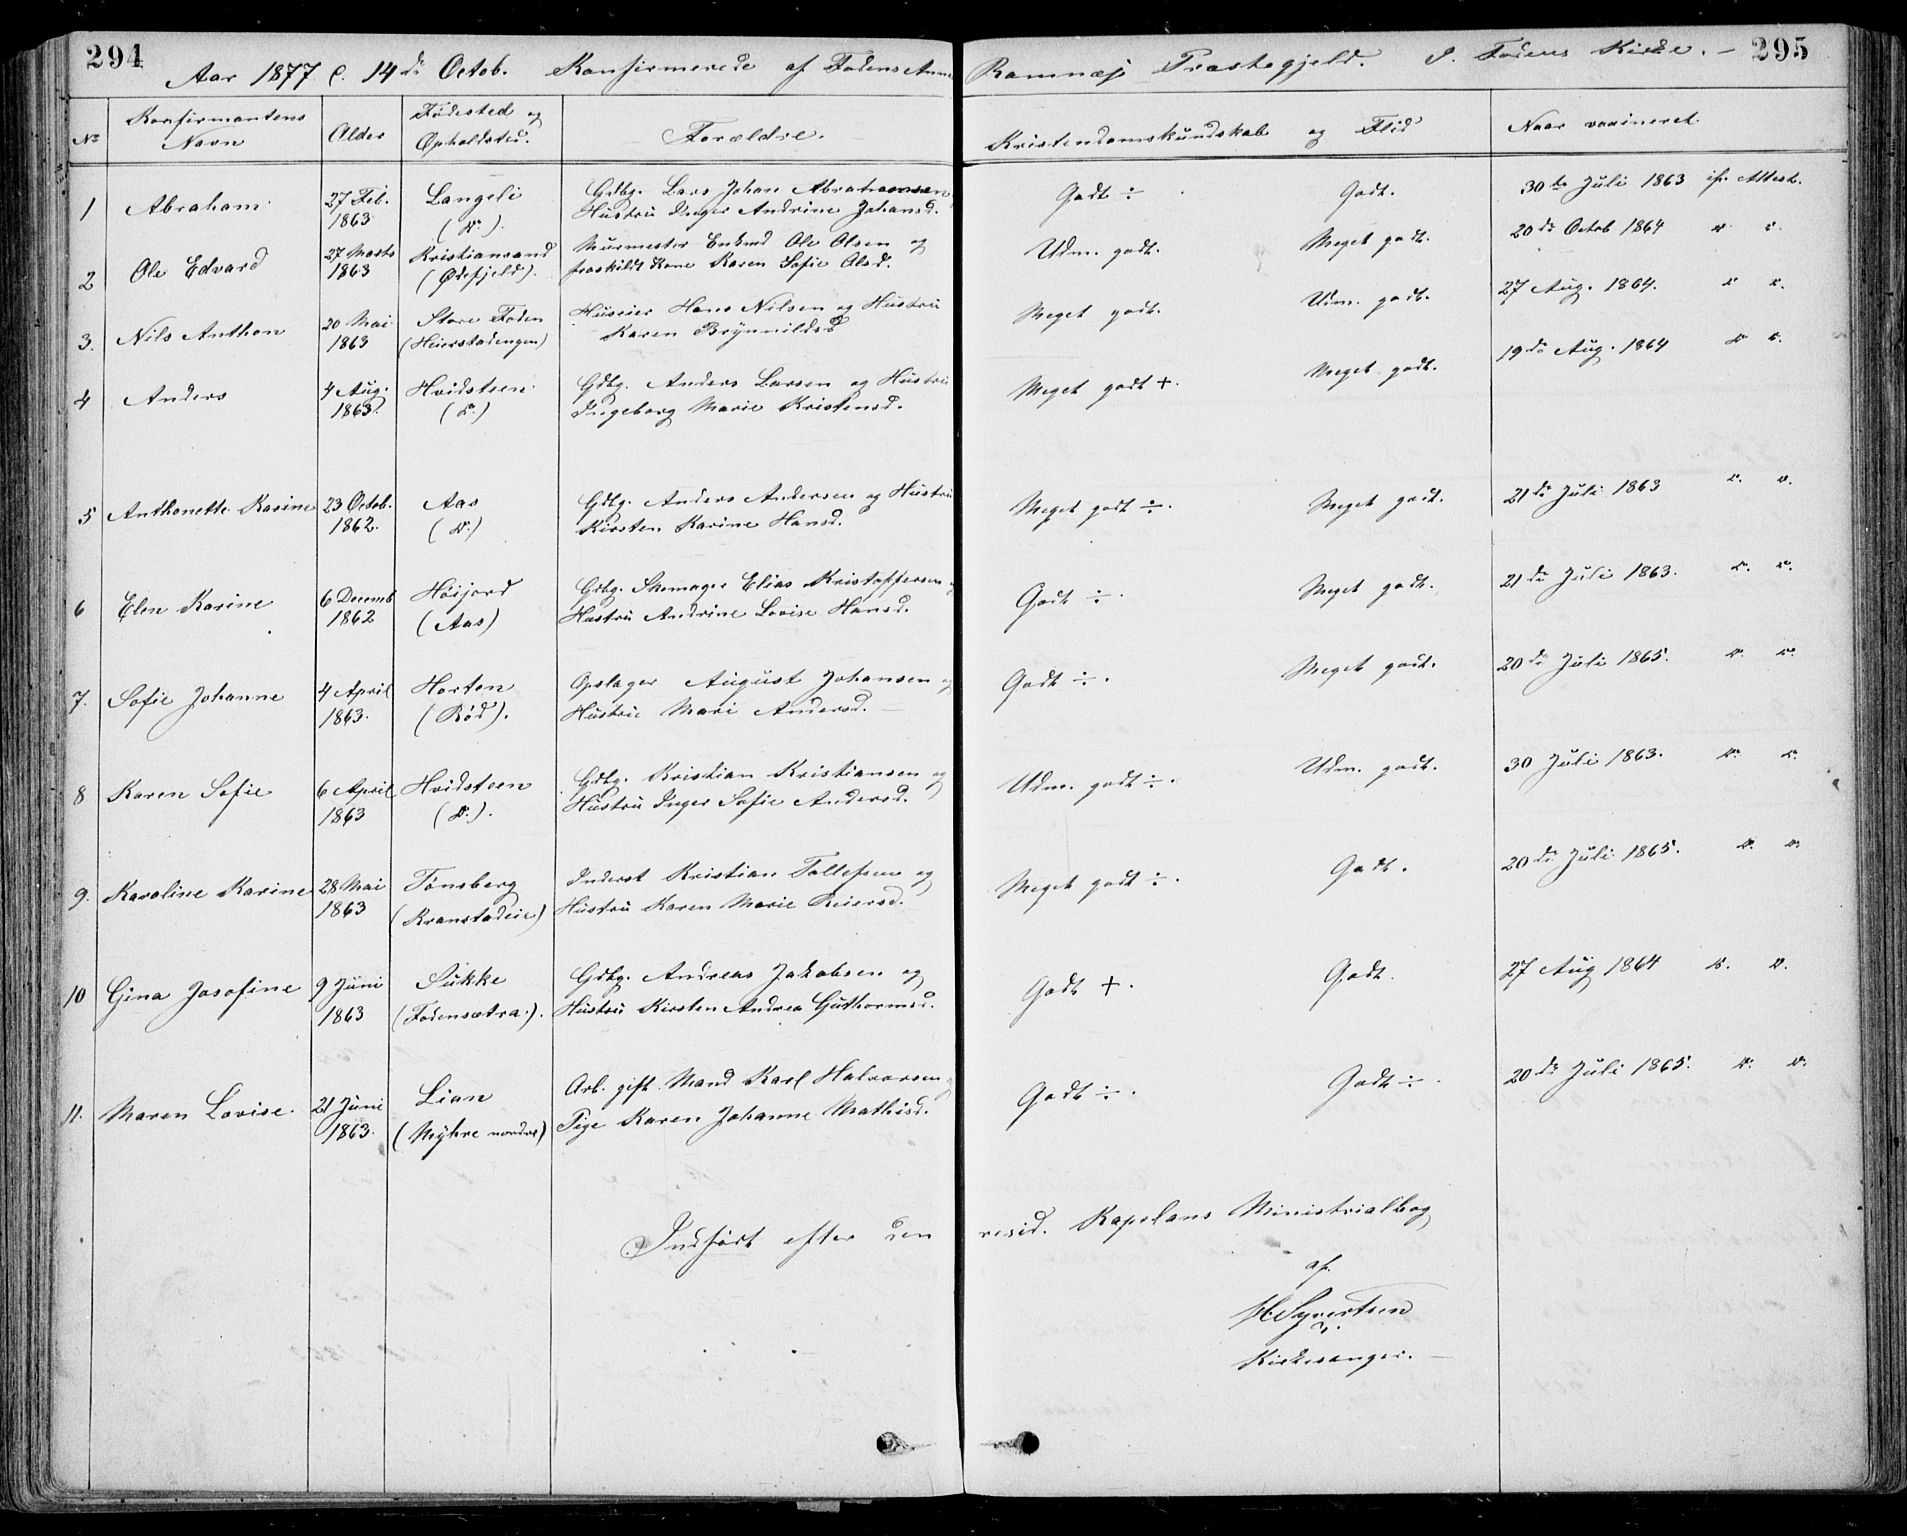 294
Aar 1877 d. 14de Octob. Konfirmerede af Fodens Annex
Ramnæs Præstegjeld. I Fodens Kirke. -
295
No Konfirmantens Navn Alder Fødested og Opholdsted. Forældre. Kristendomskundskab og Flid Naar vaxineret.
1 Abraham. 27 Feb. Langeli Gdbg. Lars Johan Abrahamsen Godt ÷ Godt. 30te Juli 1863 if. Attest.
1863 (Do.). Hustru Inger Andrine Johansd.
2 Ole Edvard 27 Marts Kristiansand Murmester Enkmd Ole Olsen og Udm. godt. Meget godt. 20de Octob 1864 " "
1863 (Ødefjeld). fraskildt Kone Karen Sofie Olsd.
3. Nils Anthon 20 Mai Store Foden Huseier Hans Nilsen og Hustru Meget godt. Udm. godt. 27 Aug. 1864. " "
1863 (Heierstadengen) Karen Brynnildsd
4 Anders 4 Aug. Hvidsteen. Gdbg. Anders Larsen og Hustru Meget godt +. Meget godt. 19de Aug. 1864 " "
1863. (Do.) Ingeborg Marie Kristensd.
5 Anthonette Karine 23 Octob. Aas Gdbg. Anders Andersen og Hustru Meget godt ÷. Meget godt. 21de Juli 1863 " "
1862. (Do.) Kirsten Karine Hansd.
6 Elen Karine 6 Decemb Høijord Gdbg. Skomager Elias Kristoffersen og Godt ÷. Meget godt. 21de Juli 1863. " "
1862 (Aas) Hustru Andrine Lovise Hansd.
7. Sofie Johanne 4 April Horten Opslager August Johansen og Godt ÷. Meget godt. 20de Juli 1865. " "
1863. (Rød). Hustru Mari Andersd. -
8 Karen Sofie 6 April Hvidsteen Gdbg. Kristian Kristiansen og Udm. godt ÷. Udm. godt. 30 Juli 1863. " "
1863 (Do.). Hustru Inger Sofie Andersd.
9. Karoline Karine 28 Mai Tønsberg Inderst Kristian Tollefsen og Meget godt ÷. Godt. 20de Juli 1865. " "
1863 (Kranstadeie) Hustru Karen Marie Reiersd.
10 Gina Josofine 9 Juni Sukke Gdbg. Andreas Jakobsen og Godt +. Godt. 27 Aug 1864 " "
1863 (Fodensætra.). Hustru Kirsten Andrea Guthormsd.
11. Maren Lovise. 21 Juni Lian Arb. gift Mand Karl Halvorsen og Godt ÷. Godt ÷. 20de Juli 1865. " "
1863. (Myhre nordre) Pige Karen Johanne Mathisd.
Indført efter den resid. Kapelans Ministrialbog
af
H Syvertsen
Kirkesanger. -